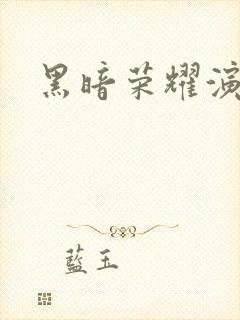 黑暗荣耀演
藍玉